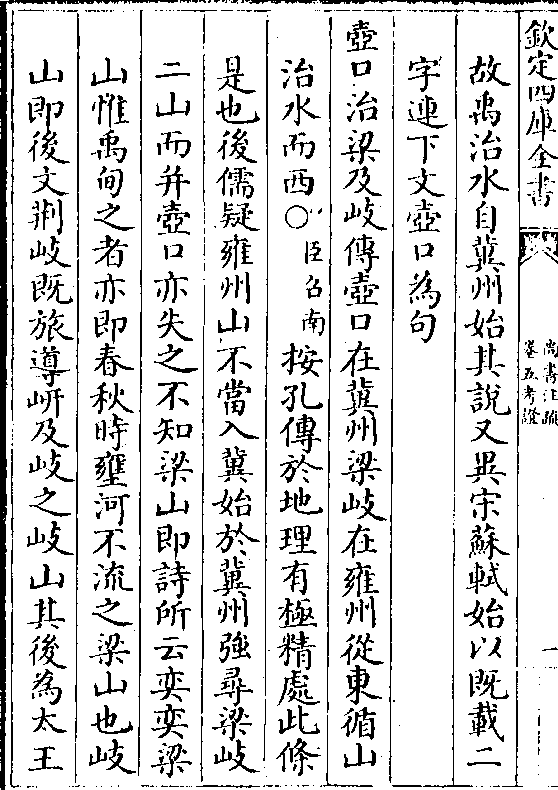 欽定四庫全書
尚書注疏
卷五考證
一
故禹治水自冀州始其說又異宋蘇軾始以既載二
字連下文壺口為句
壺口治梁及岐傳壺口在冀州梁岐在雍州從東循山
治水而西○臣召南按孔傳於地理有極精處此條
是也後儒疑雍州山不當入冀始於冀州強尋梁岐
二山而并壺口亦失之不知梁山即詩所云奕奕梁
山惟禹甸之者亦即春秋時壅河不流之梁山也岐
山即後文荆岐既旅導岍及岐之岐山其後為太王